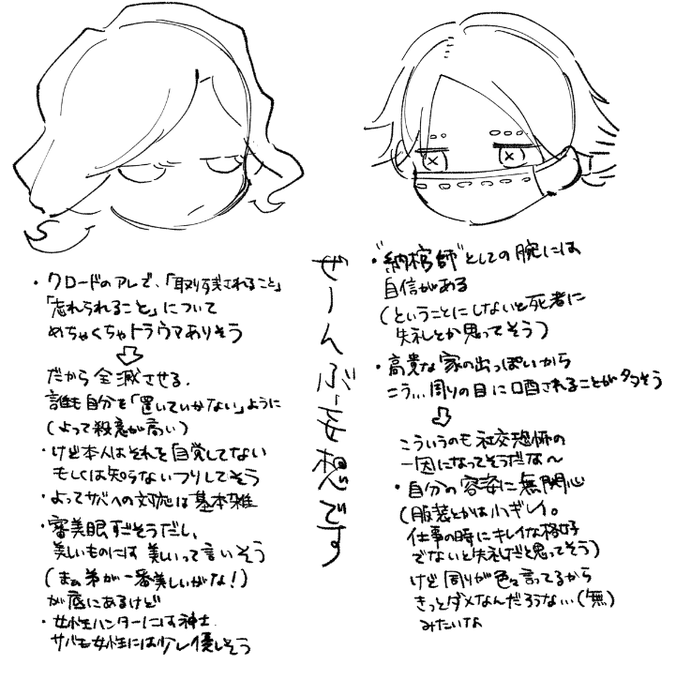 ・クロードのアレで、「取り残されること」
「忘れられること」について
めちゃくちゃトラウマありそう
⇩
だから全滅させる。
誰も自分を「置いていかない」ように
(よって殺意が高い)
・けど本人はそれを自覚してない
もしくは知らないフリしてそう
・よってサバへの対応は基本雑
・審美眼すごそうだし、
美しいものには美しいって言いそう
(まぁ弟が一番美しいがな!)
が底にあるけど
・女性ハンターには紳士
サバも女性には少し優しそう
ぜーんぶ妄想です
・"納棺師"としての腕には
自信がある
(ということにしないと死者に
失礼とか思ってそう)
・高貴な家の出っぽいから
こう…周りの目に晒されることが多そう
⇩
こういうのも社交恐怖の
一因になってそうだな〜
・自分の容姿に無関心
(服装とかは小ギレイ。
仕事の時にキレイな格好
でないと失礼だと思ってそう)
けど周りが色々言ってるから
きっとダメなんだろうな…(無)
みたいな